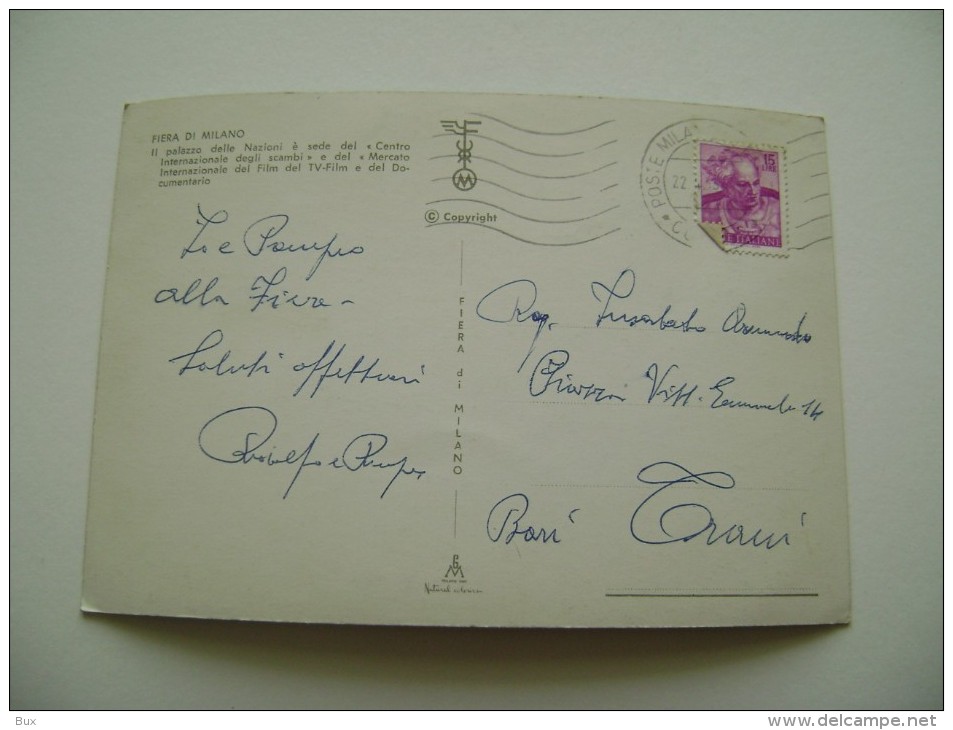 FIERA DI MILANO
Il palazzo delle Nazioni è sede del « Centro
Internazionale degli scambi » e del « Mercato
Internazionale del Film del TV-Film e del Do-
cumentario
© Copyright
POSTE MILA
22
15
LIRE
E ITALIANE
Io e Pampeo
alla Fiera -
Saluti affettuosi
Rodolfo e
FIERA di MILANO
Rag.
Piazza Vitt. Emanuele 14
Bari Trani
Bux
www.delcampe.net